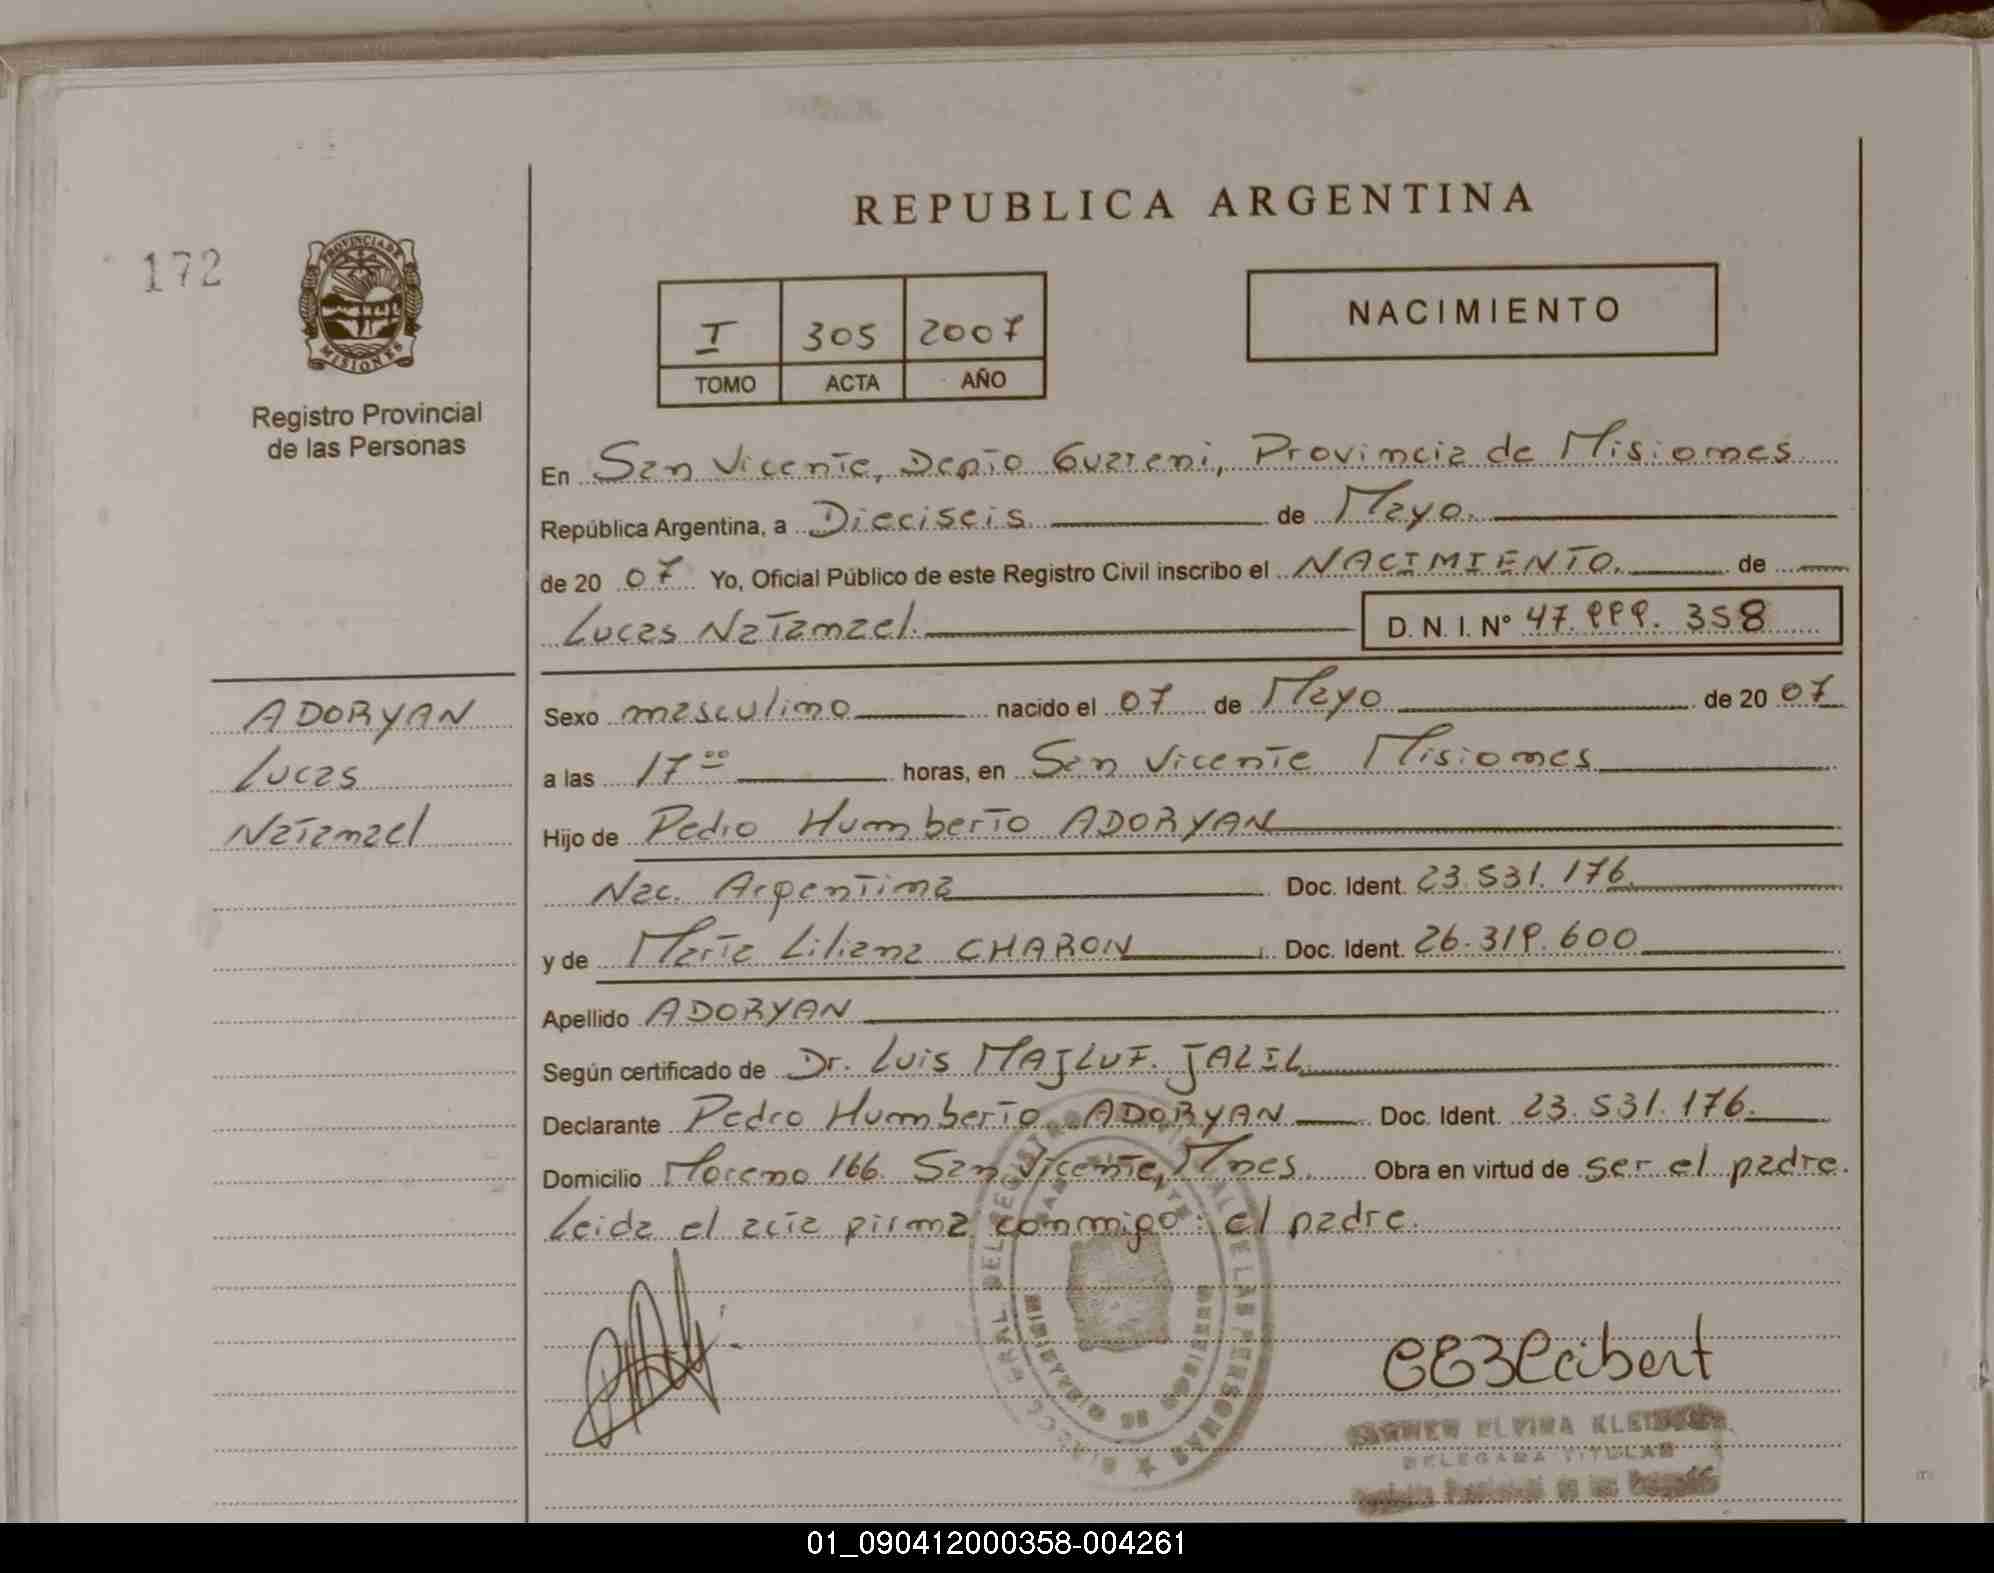 REPUBLICA ARGENTINA
172
PROVINCIA DE
MISIONES
Registro Provincial
de las Personas
I 305 2007
TOMO ACTA AÑO
NACIMIENTO
En San Vicente, Depto Guarani, Provincia de Misiones
República Argentina, a Dieciseis de Mayo.
de 20 07 Yo, Oficial Público de este Registro Civil inscribo el NACIMIENTO. de
Lucas Natanael. D. N. I. Nº 47.999.358
ADORYAN
Lucas
Natanael
Sexo masculino nacido el 07 de Mayo de 20 07
a las 17 00 horas, en San Vicente Misiones
Hijo de Pedro Humberto ADORYAN
Nac. Argentina Doc. Ident. 23.531.176.
y de Maria Liliana CHARON Doc. Ident. 26.319.600
Apellido ADORYAN
Según certificado de Dr. Luis MAJLUF. JALIL
Declarante Pedro Humberto ADORYAN Doc. Ident. 23.531.176.
Domicilio Moreno 166. San Vicente, Mnes. Obra en virtud de ser el padre.
Leida el acta firma conmigo: el padre.
CARMEN ELVIRA
DELEGADA TITULAR
Registro Provincial de las Personas
01_090412000358-004261